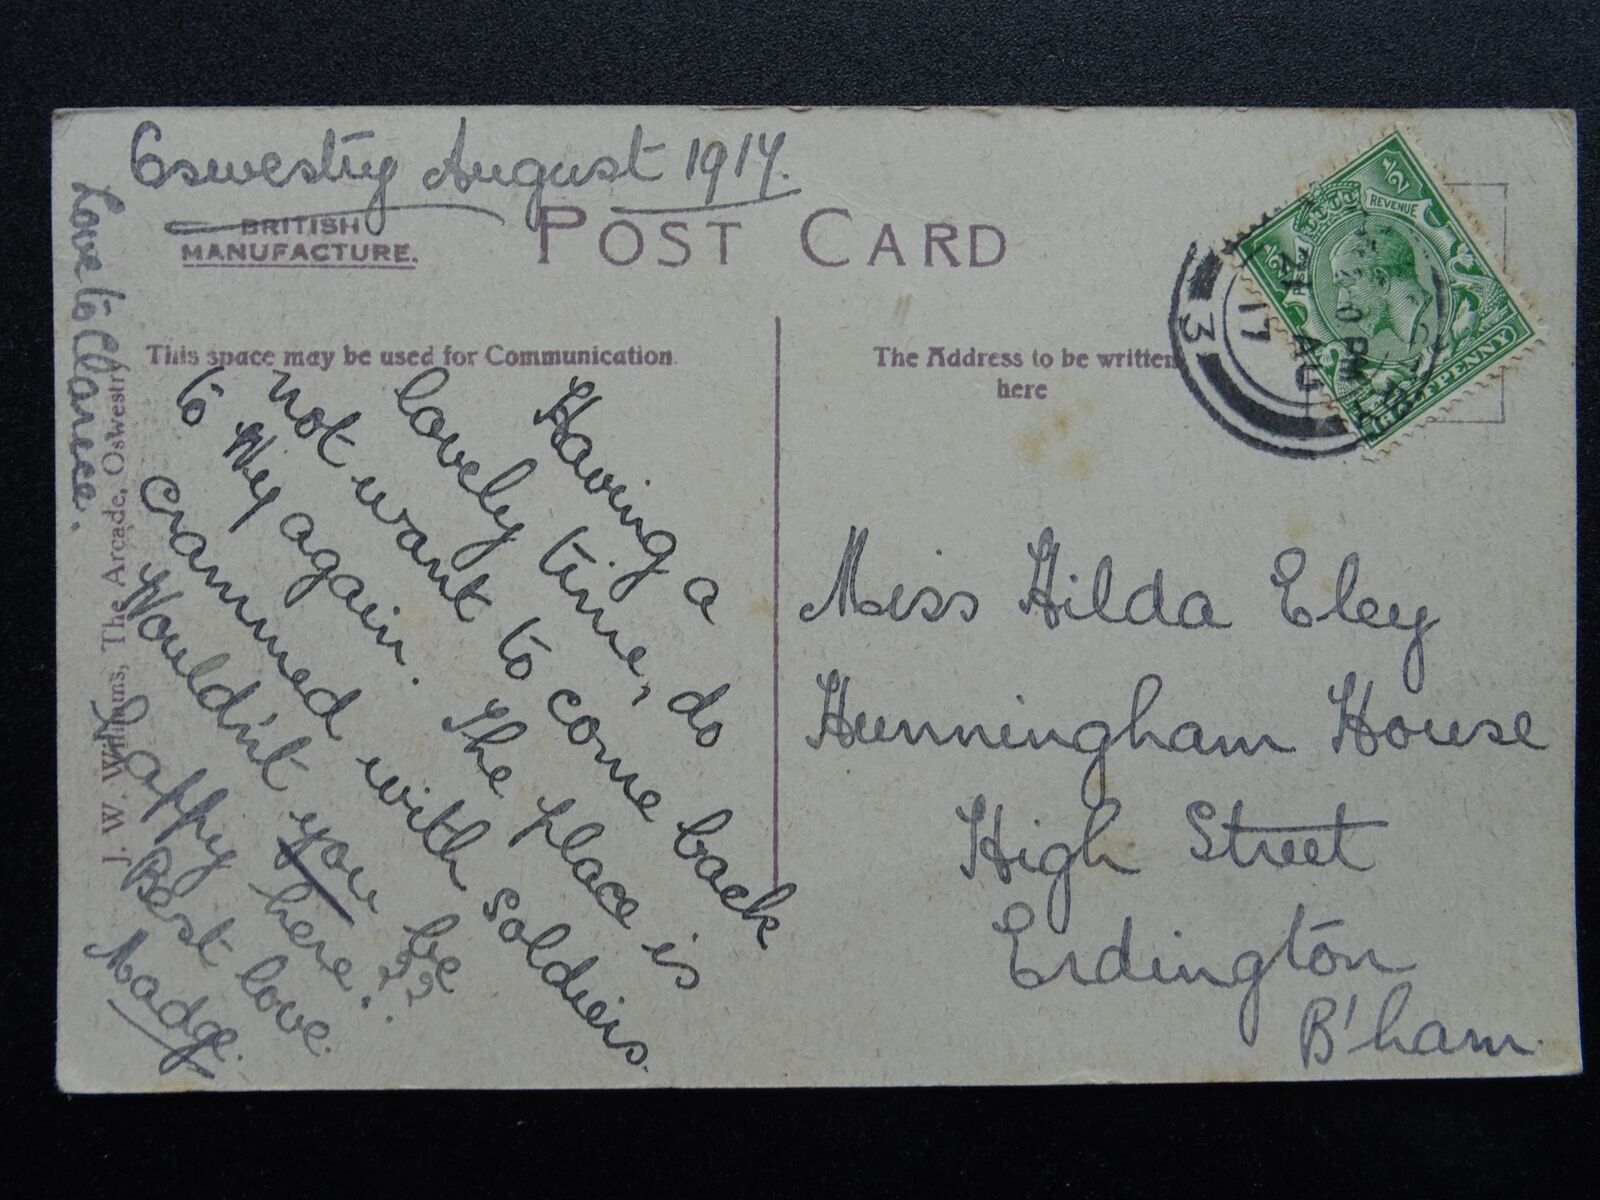 Oswestry August 1917.
BRITISH
MANUFACTURE.
POST CARD
This space may be used for Communication
The Address to be written
here
Having a
lovely time, do
not want to come back
to Wy again. The place is
crammed with soldiers.
Wouldn't you be
happy here.??
Best love.
Madge.
Love to Clarice.
J. W. Williams, The Arcade, Oswestry
Miss Hilda Eley
Hunningham House
High Street
Erdington
B'ham.
REVENUE
1/2
1/2
HALFPENNY
PM
AU
17
3